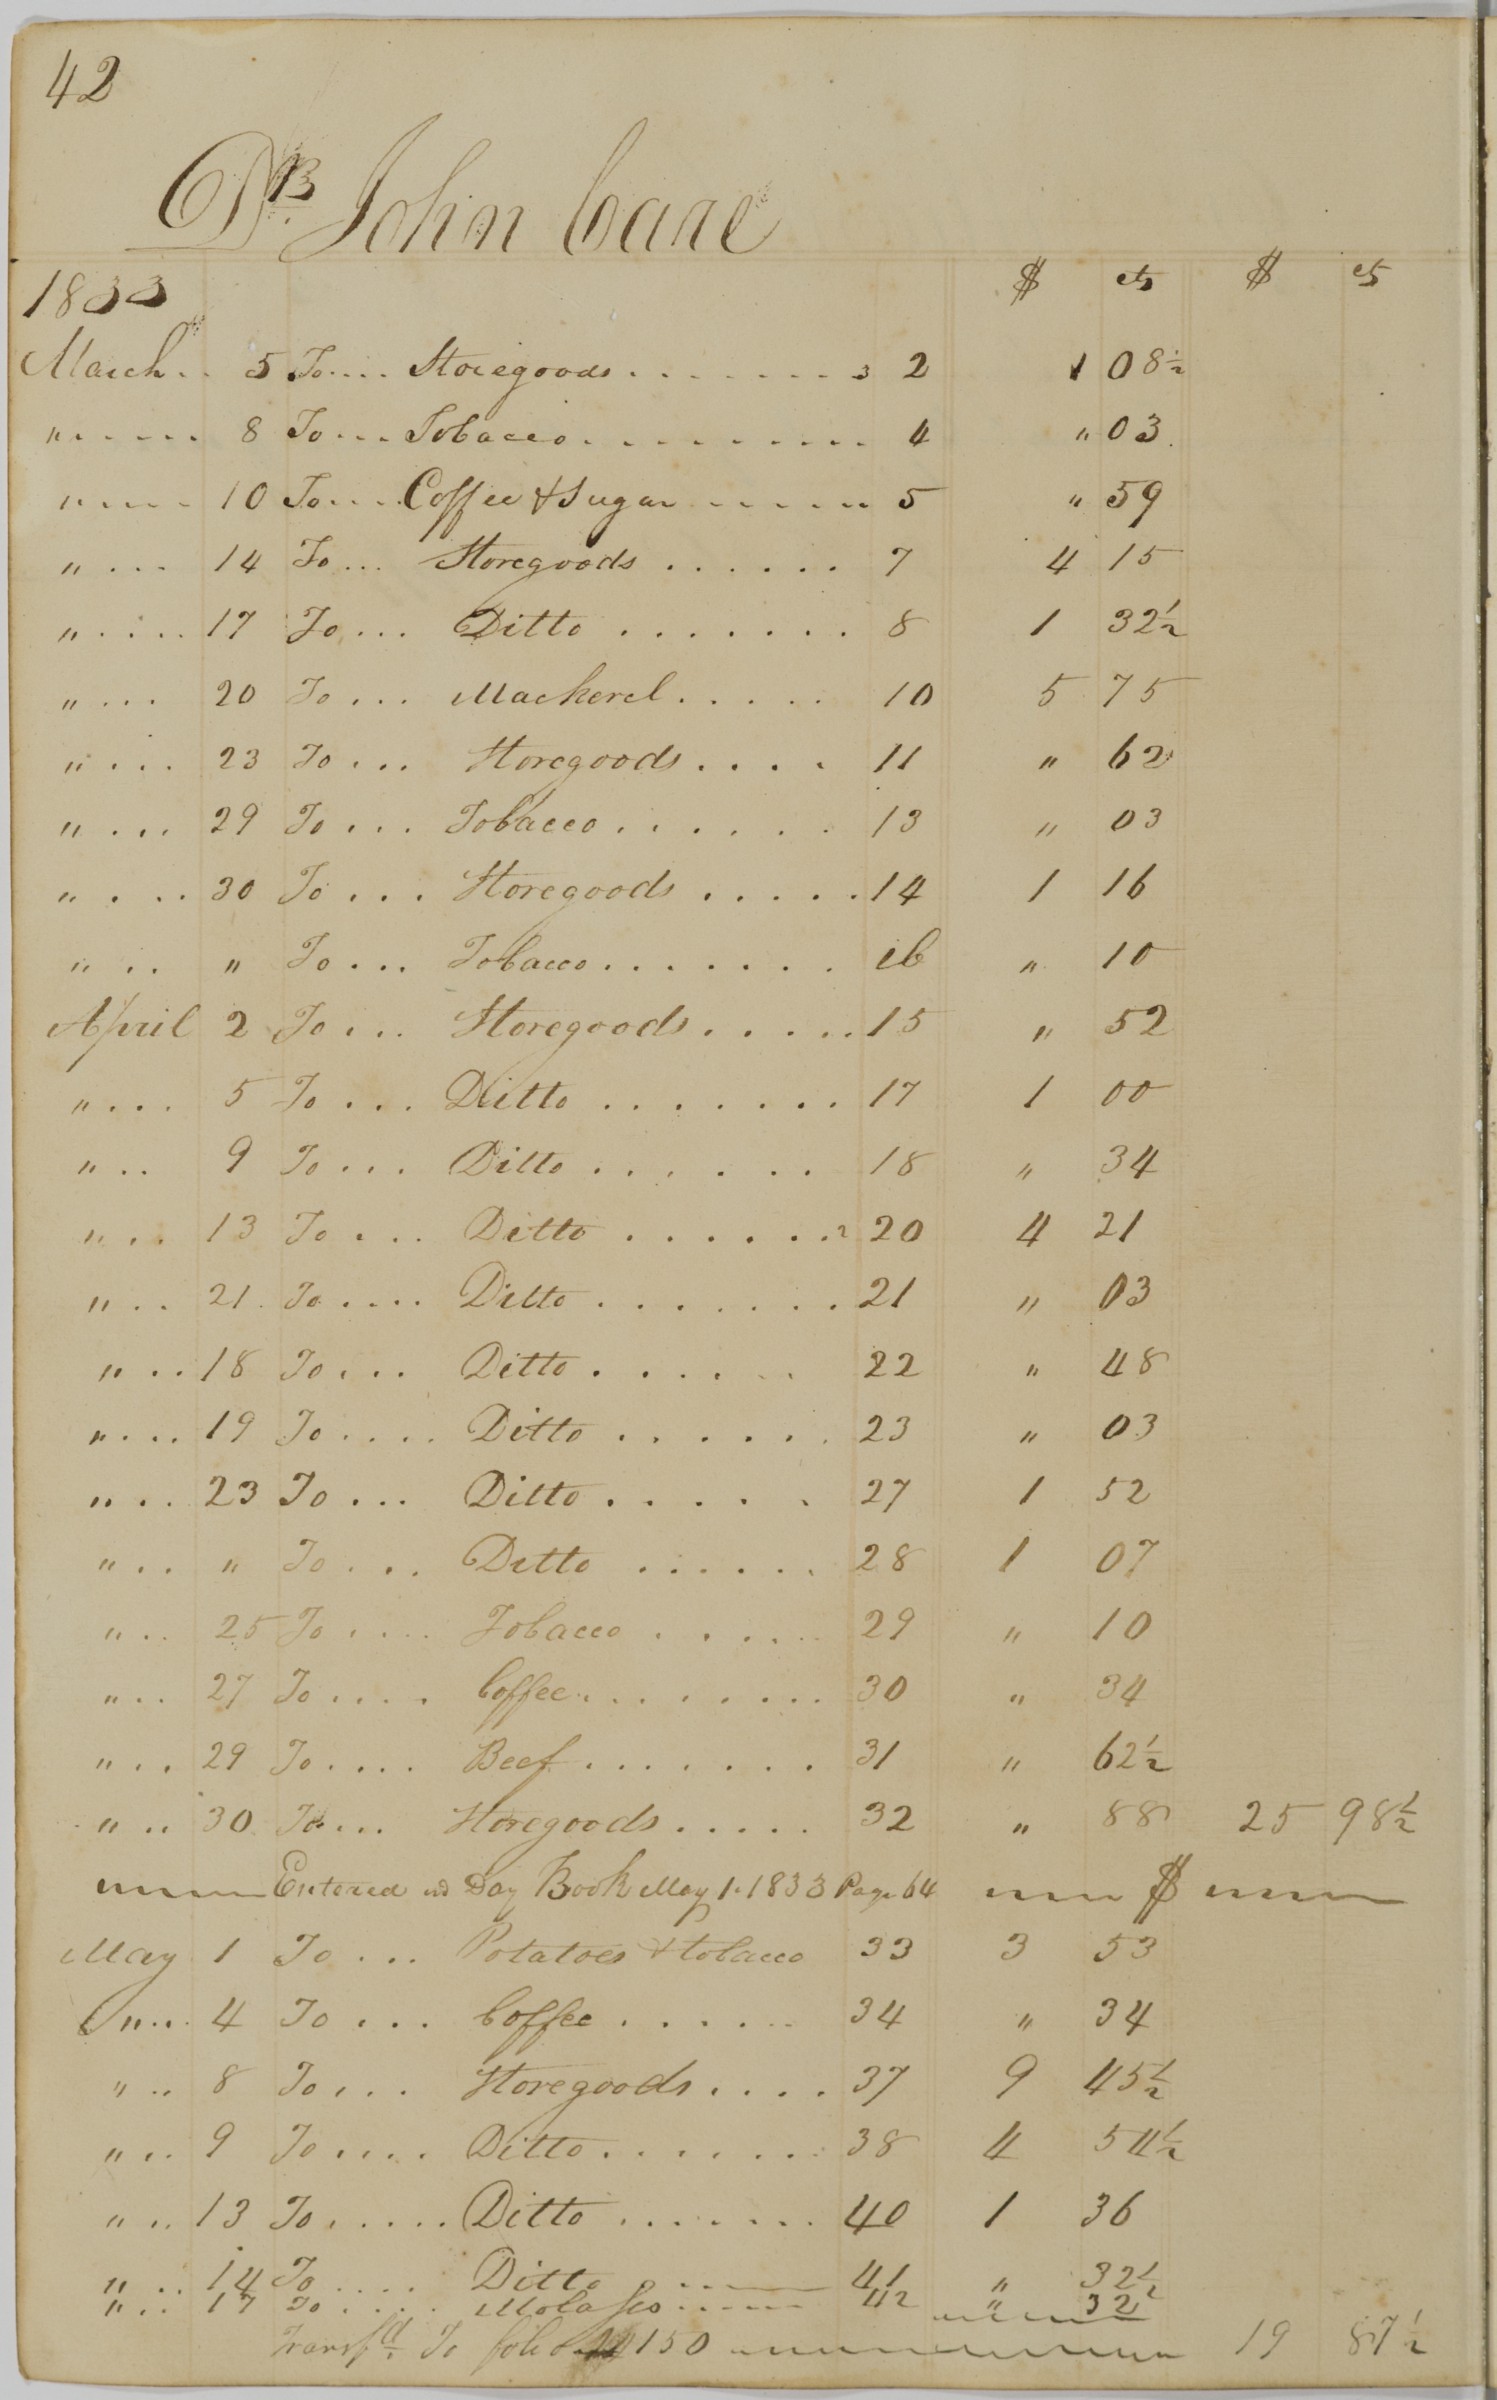 42
Dr. John Carl
1833 $ cts $ cts
March .. 5 To .... Storegoods ........ 2 1 08½
" ..... 8 To ... Tobacco .......... 4 " 03
" .... 10 To .... Coffee & Sugar ...... 5 " 59
" ... 14 To ... Storegoods ...... 7 4 15
" .... 17 To ... Ditto ....... 8 1 32½
" ... 20 To ... Mackerel ..... 10 5 75
" ... 23 To ... Storegoods .... 11 " 62
" ... 29 To ... Tobacco ...... 13 " 03
" .... 30 To ... Storegoods ..... 14 1 16
" .. " To ... Tobacco ....... ib " 10
April 2 To ... Storegoods ..... 15 " 52
" ... 5 To ... Ditto ....... 17 1 00
" .. 9 To ... Ditto ...... 18 " 34
" .. 13 To ... Ditto ...... 20 4 21
" .. 21 To .... Ditto ....... 21 " 03
" .. 18 To ... Ditto ...... 22 " 48
" ... 19 To .... Ditto ...... 23 " 03
" .. 23 To ... Ditto ..... 27 1 52
" .. " To ... Ditto ...... 28 1 07
" .. 25 To .... Tobacco ..... 29 " 10
" .. 27 To .... Coffee ........ 30 " 34
" ... 29 To .... Beef ....... 31 " 62½
" .. 30 To ... Storegoods ..... 32 " 88 25 98½
Entered in Day Book May 1. 1833 Page 64 $
May 1 To ... Potatoes & tobacco 33 3 53
" ... 4 To ... Coffee ...... 34 " 34
" .. 8 To ... Storegoods .... 37 9 45½
" .. 9 To .... Ditto ....... 38 4 54½
" .. 13 To ..... Ditto ....... 40 1 36
" .. 14 To .... Ditto ...... 41 " 32½
" .. 17 To ..... Molasses ...... 42 " 32
Transfd. To folio 150 19 87½